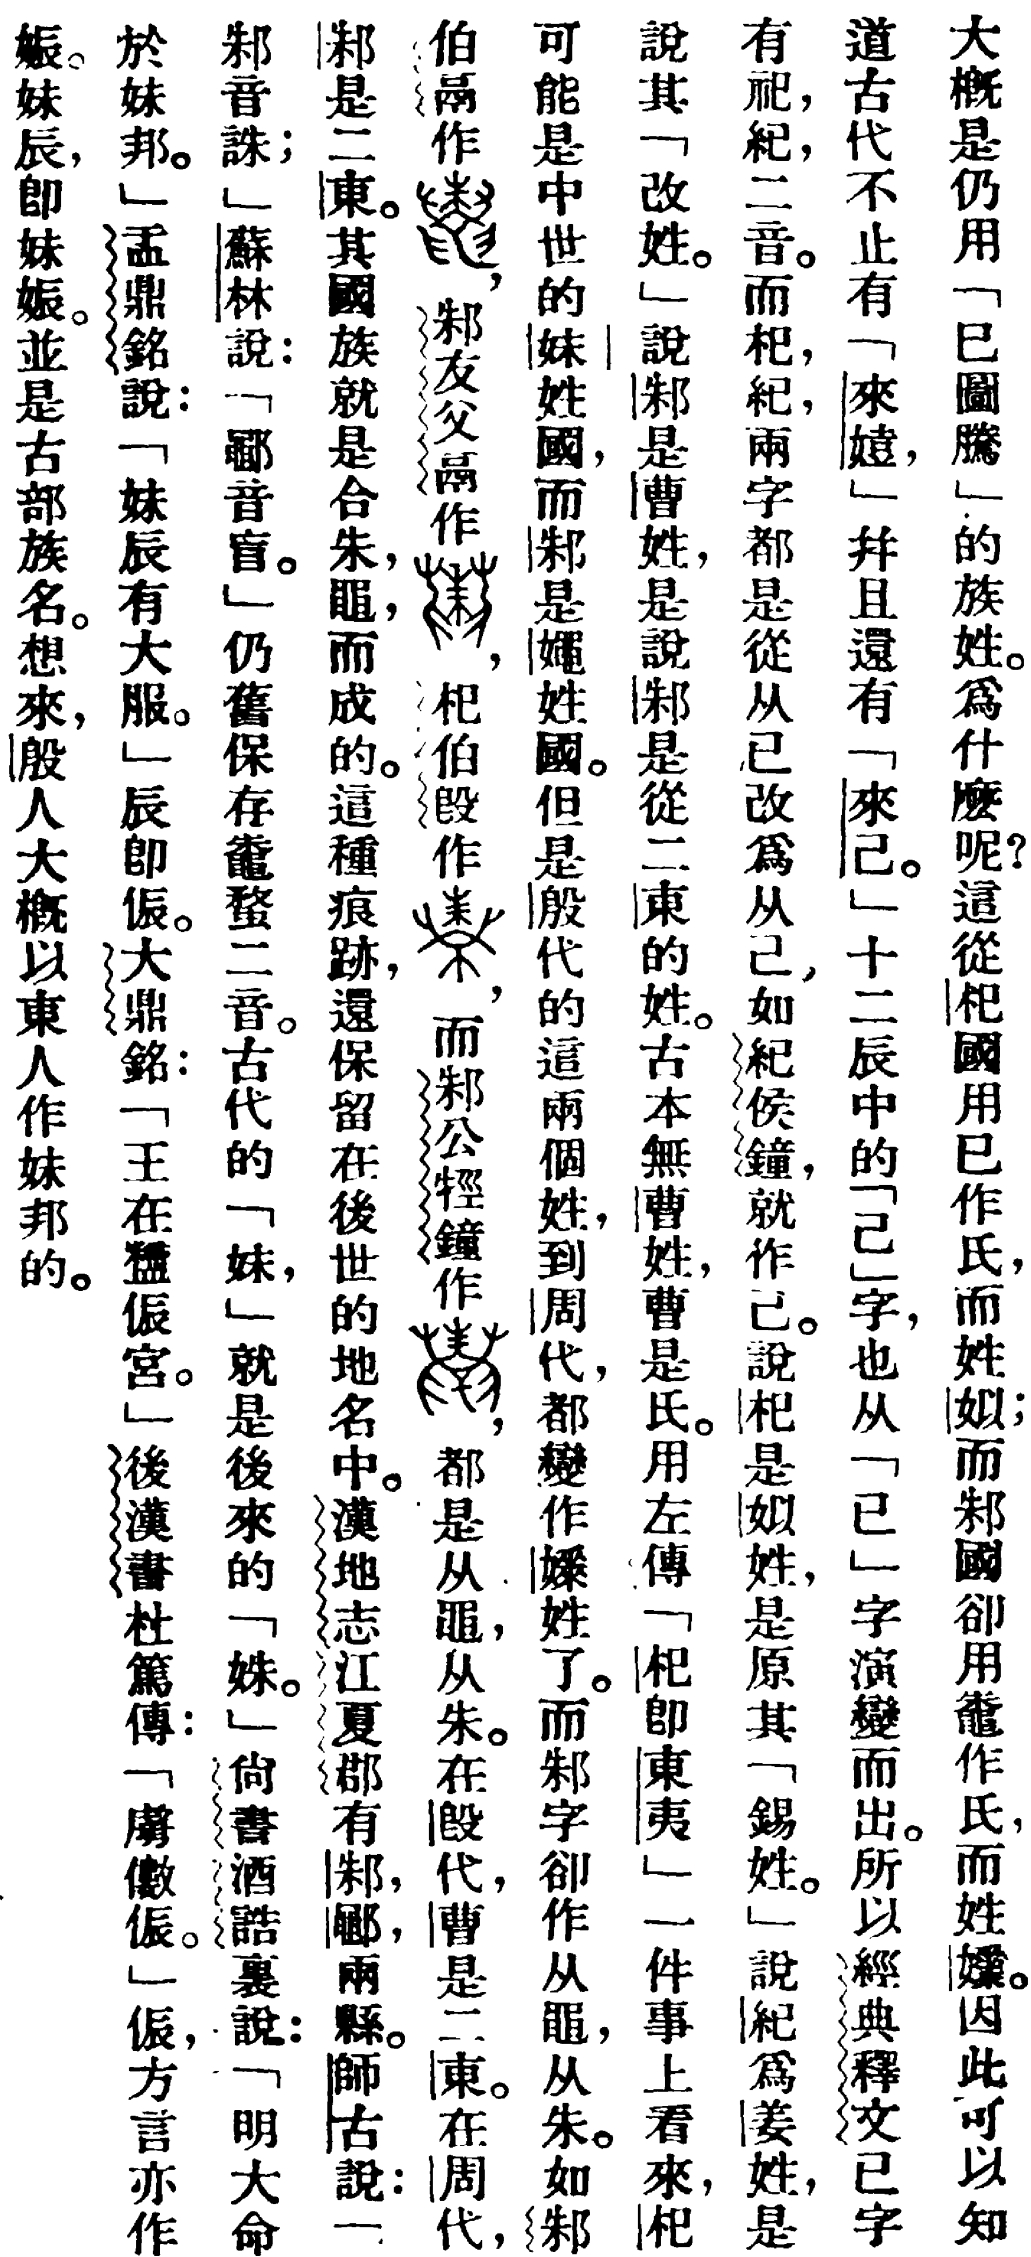 大概是仍用「巳圖騰」的族姓。爲什麼呢?這從杞國用巳作氏,而姓姒;而邾國卻用鼄作氏,而姓嫘。因此可以知
道古代不止有「來嬄,」幷且還有「來己。」十二辰中的「己」字,也从「已」字演變而出。所以經典釋文已字
有祀,紀,二音。而杞,紀,兩字都是從从已改爲从己,如紀侯鐘,就作己。說杞是姒姓,是原其「錫姓。」說紀爲姜姓,是
說其「改姓。」說邾是曹姓,是說邾是從二東的姓。古本無曹姓,曹是氏。用左傳「杞卽東夷」一件事上看來,杞
可能是中世的妹姓國,而邾是㜺姓國。但是殷代的這兩個姓,到周代,都變作嫘姓了。而邾字卻作从黽,从朱。如邾
伯鬲作,邾友父鬲作,杞伯𣪘作,而邾公牼鐘作,都是从黽,从朱。在殷代,曹是二東。在周代,
邾是二東。其國族就是合朱,黽,而成的。這種痕跡,還保留在後世的地名中。漢地志江夏郡有邾,鄳,兩縣。師古說:「
邾音誅;」蘇林說:「鄳音盲。」仍舊保存鼄蝥二音。古代的「妹,」就是後來的「姝。」尙書酒誥裏說:「明大命
於妹邦。」盂鼎銘說:「妹辰有大服。」辰卽侲。大鼎銘:「王在䀇侲宮。」後漢書杜篤傳:「虜儌侲。」侲,方言亦作
娠。妹辰,卽妹娠。並是古部族名。想來,殷人大概以東人作妹邦的。